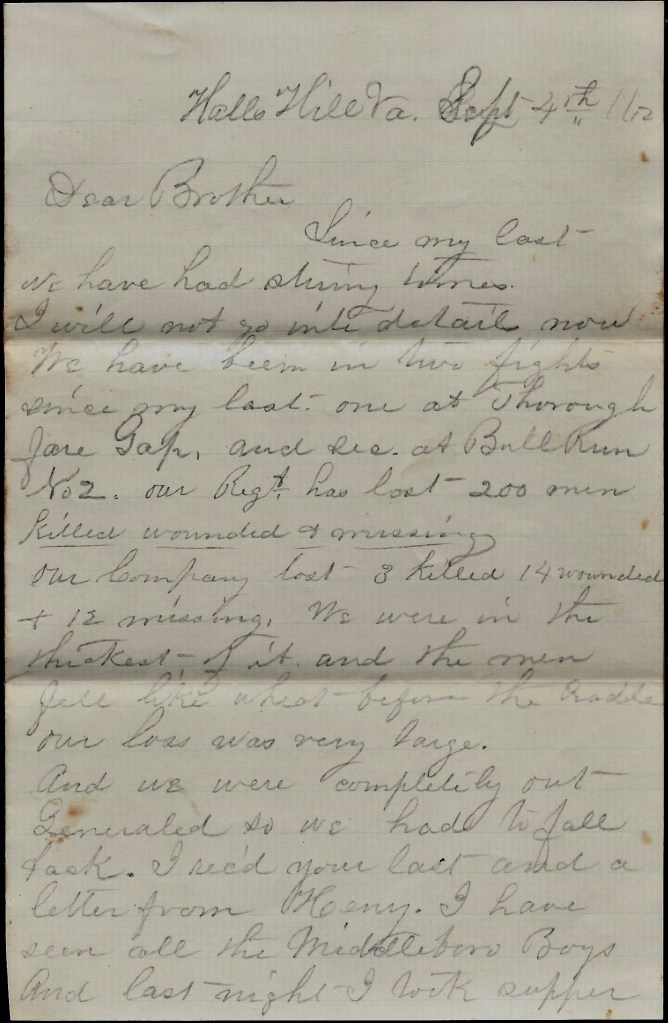 Halls Hill Va. Sept 4th
Dear Brother
Since my last
we have had stiring times.
I will not go into detail now
We have been in two fights
since my last. one at Thorough
fare Gap, and sec. at Bull Run
No 2. our Regt. has lost 200 men
killed wounded & missing
our Company lost 3 killed 14 wounded
+ 12 missing. We were in the
thickest of it. and the men
fell like wheat before the Cradle
our loss was very large.
And we were completily out
Generaled so we had to fall
back. I rec'd your last and a
letter from Heny. I have
seen all the Middleboro Boys
And last night I took supper